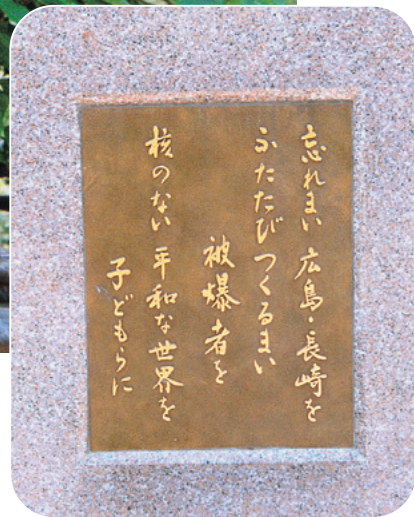 忘れまい 広島・長崎を
ふたたび つくるまい
被爆者を
核のない 平和な世界を
子どもらに